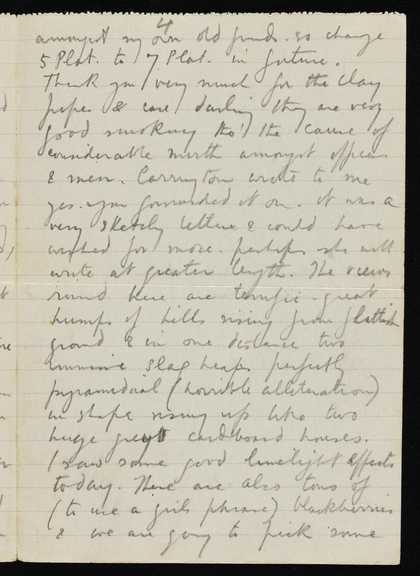 4
amongst my own old friends. so change
5 Plat. to 7 Plat. in future.
Thank you very much for the clay
pipes & case darling they are very
good smoking tho' the cause of
considerable mirth amongst officers
& men. Carrington wrote to me
yes. you forwarded it on. it was a
very sketchy letter & could have
wished for more. perhaps she will
write at greater length. The views
round here are terrific. great
humps of hills rising from flattish
ground & in one distance two
immense slag heaps perfectly
pyramidical (horrible alliteration)
in shape rising up like two
huge grey cardboard houses.
I saw some good limelight effects
today. There are also tons of
(to use a girls phrase) blackberries
& we are going to pick some